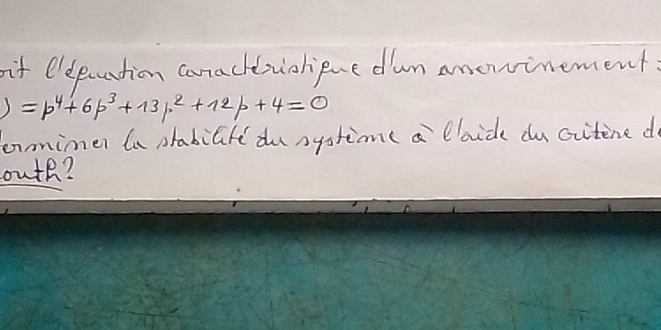 oit l'équation caractéristique d'un asservissement:
) = p⁴+6p³+13p²+12p+4=0
erminer la stabilité du système à l'aide du critère de
outh?